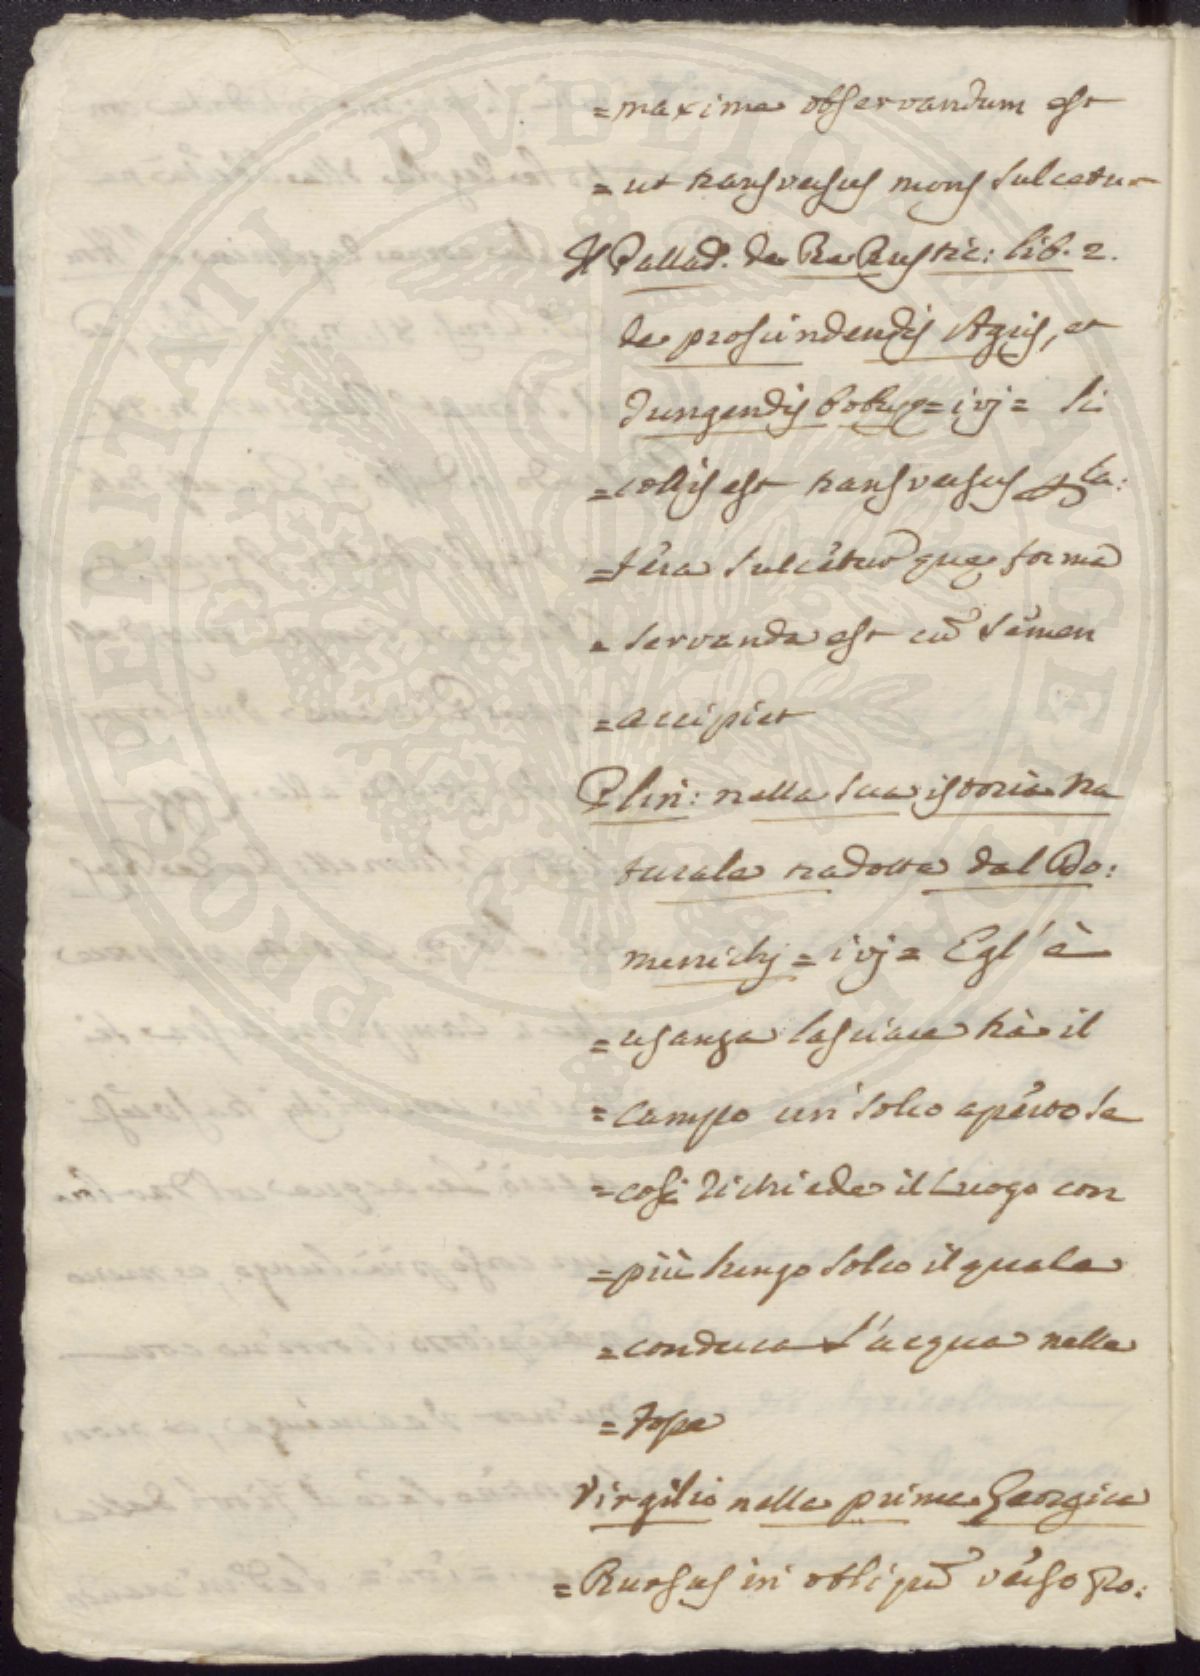 = maxime observandum est
= ut transversus mons sulcetur
Il Pallad. de Re Rustic: lib. 2.
de proscindendis Agris, et
Jungendis bobus = ivj = si
= collis est transversus per la:
= tera sulcetur que forma
= servanda est cũ semen
= accipiet
Plin: nella sua istoria Na
turale tradotta dal Do:
menichj = ivj = Egl'è
= usanza lasciare trà il
= campo un solco aperto se
= così richiede il Luogo con
= più lungo solco il quale
= conduca l'acqua nelle
= fosse
Virgilio nella prima Georgica
= Rursus in obliquũ verso pro:
PROSPERITATI PVBLICAE AVGENDAE